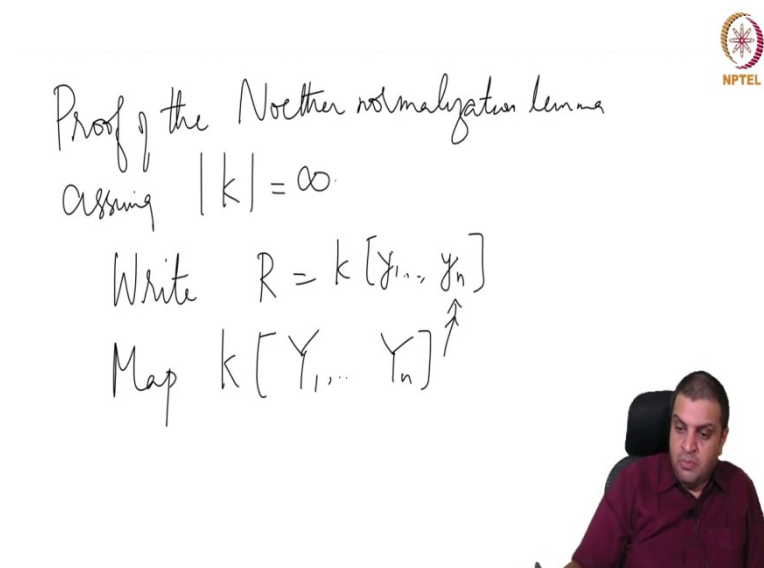 NPTEL
Proof of the Noether normalization lemma
assuming |k| = ∞.
Write R = k[y₁..., yₙ]
Map k[Y₁,... Yₙ]